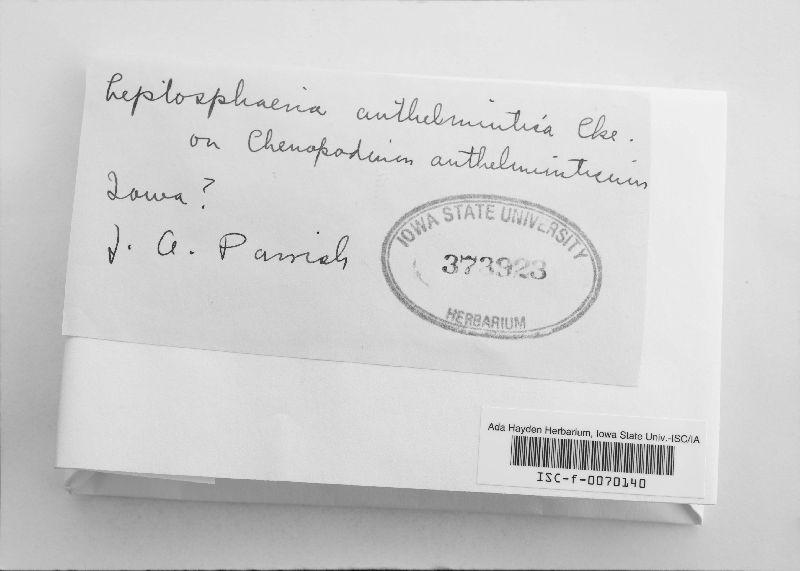 Leptosphaeria anthelmintica Cke.
on Chenopodium anthelminticum
Iowa?
J. A. Parrish
IOWA STATE UNIVERSITY
373923
HERBARIUM
Ada Hayden Herbarium, Iowa State Univ.-ISC/IA
ISC-f-0070140